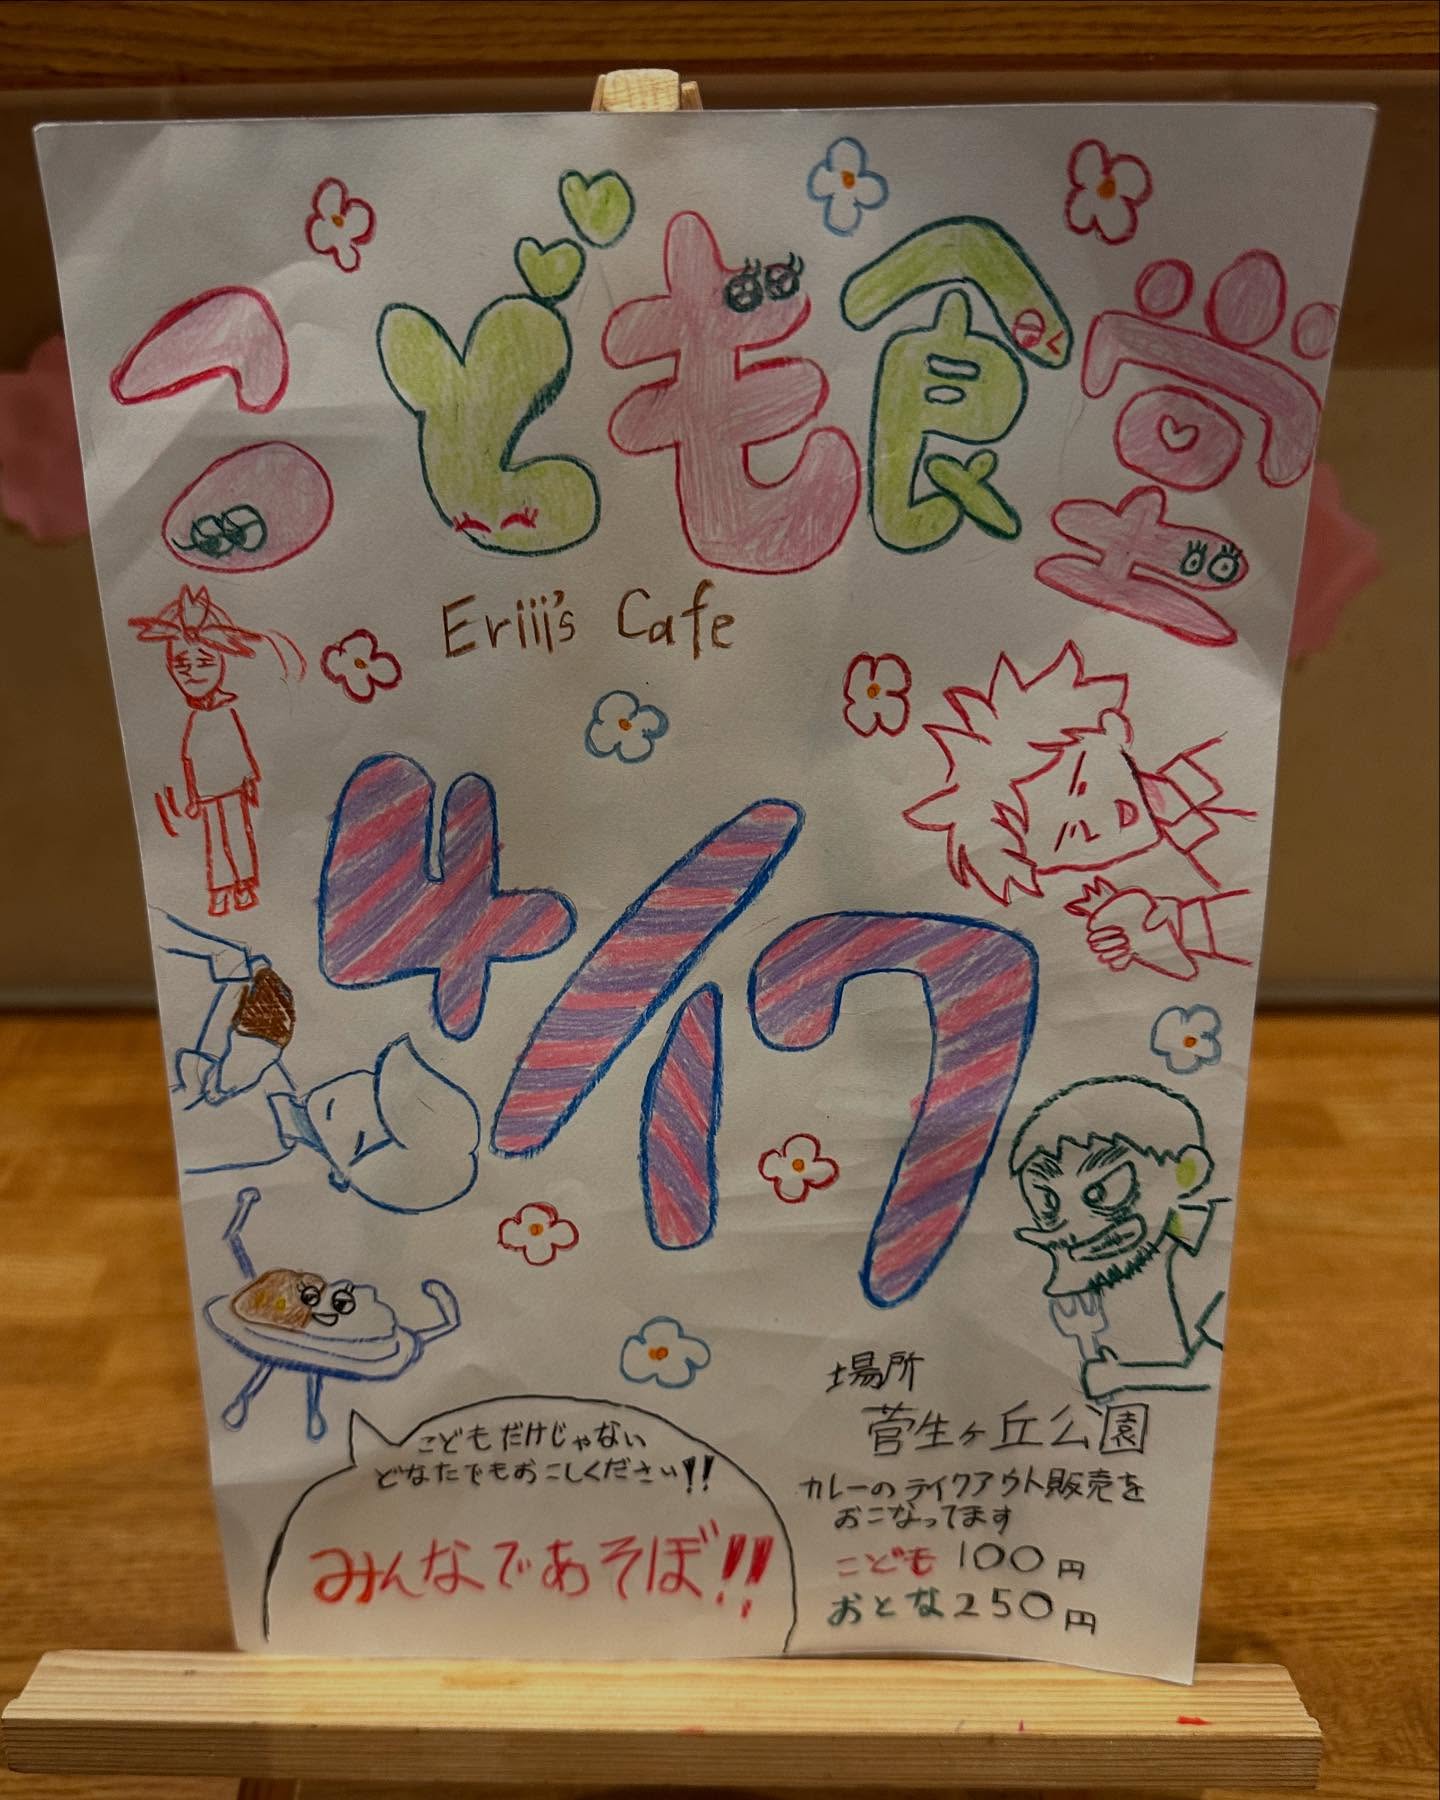 こども食堂
Eriii's Cafe
4/17
場所
菅生ヶ丘公園
カレーのテイクアウト販売を
おこなってます
こども 100円
おとな 250円
こどもだけじゃない
どなたでもおこしください!!
みんなであそぼ!!